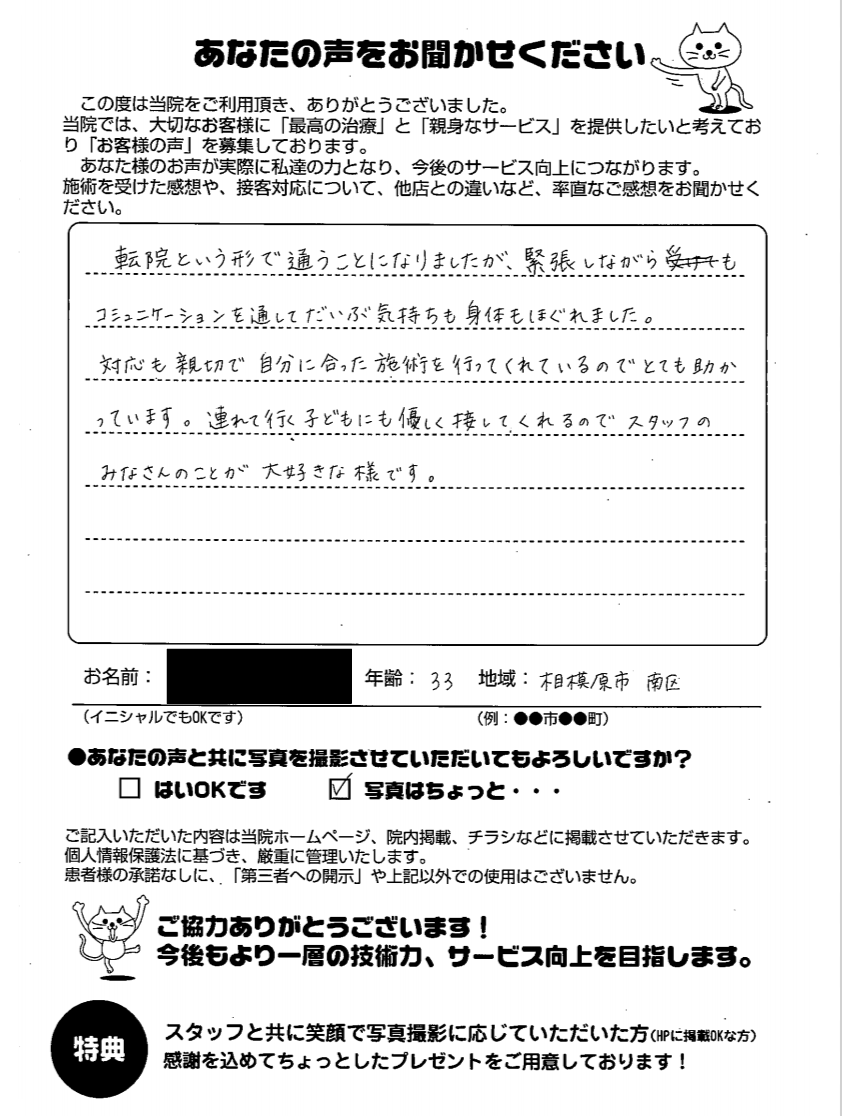 あなたの声をお聞かせください
この度は当院をご利用頂き、ありがとうございました。
当院では、大切なお客様に「最高の治療」と「親身なサービス」を提供したいと考えてお
り「お客様の声」を募集しております。
あなた様のお声が実際に私達の力となり、今後のサービス向上につながります。
施術を受けた感想や、接客対応について、他店との違いなど、率直なご感想をお聞かせく
ださい。
転院という形で通うことになりましたが、緊張しながら受けても
コミュニケーションを通してだいぶ気持ちも身体もほぐれました。
対応も親切で自分に合った施術を行ってくれているのでとても助か
っています。連れて行く子どもにも優しく接してくれるのでスタッフの
みなさんのことが大好きな様です。
お名前： 年齢：33 地域：相模原市 南区
（イニシャルでもOKです） （例：●●市●●町）
●あなたの声と共に写真を撮影させていただいてもよろしいですか？
□ はいOKです ☑ 写真はちょっと・・・
ご記入いただいた内容は当院ホームページ、院内掲載、チラシなどに掲載させていただきます。
個人情報保護法に基づき、厳重に管理いたします。
患者様の承諾なしに、「第三者への開示」や上記以外での使用はございません。
ご協力ありがとうございます！
今後もより一層の技術力、サービス向上を目指します。
特典
スタッフと共に笑顔で写真撮影に応じていただいた方(HPに掲載OKな方)
感謝を込めてちょっとしたプレゼントをご用意しております！